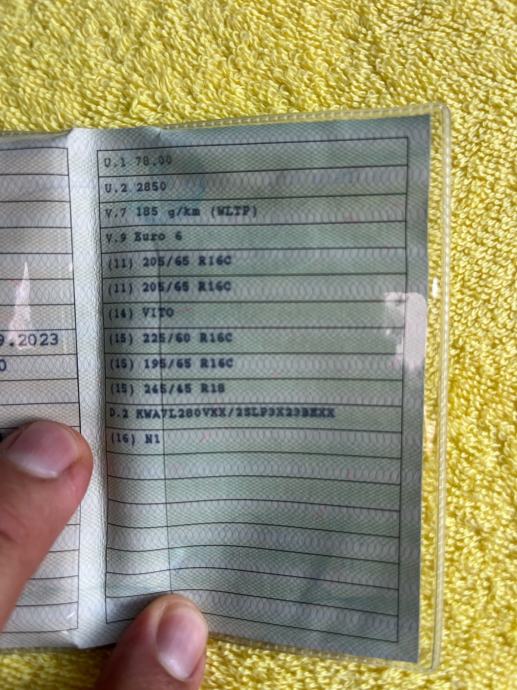 U.1 78.00
U.2 2850
V.7 185 g/km (WLTP)
V.9 Euro 6
(11) 205/65 R16C
(11) 205/65 R16C
(14) VITO
9.2023
(15) 225/60 R16C
0
(15) 195/65 R16C
(15) 245/45 R18
D.2 KWA7L280VKX/2SLP3X23BKXX
(16) N1